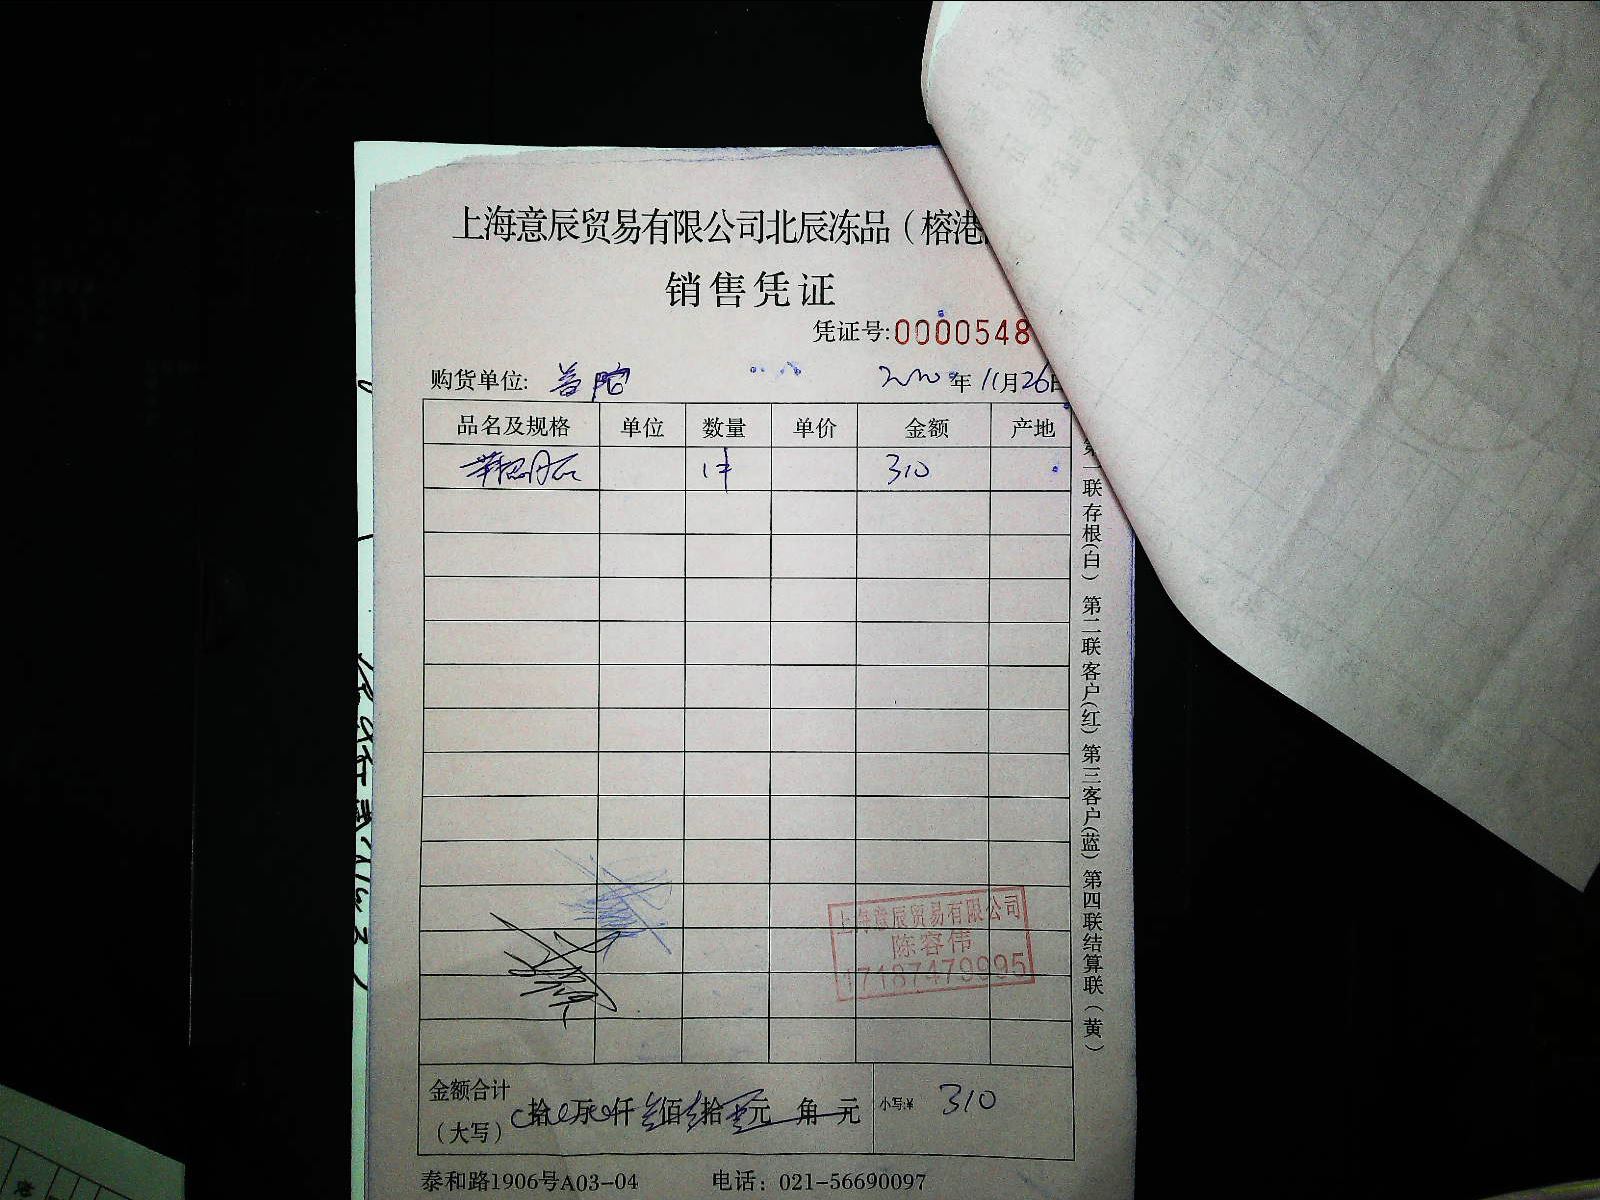 上海意辰贸易有限公司北辰冻品（榕港
销售凭证
凭证号:0000548
购货单位: 普陀 2020年11月26日
品名及规格 单位 数量 单价 金额 产地
1件 310
第一联存根(白) 第二联客户(红) 第三客户(蓝) 第四联结算联(黄)
上海意辰贸易有限公司
陈容伟
17187479995
金额合计
（大写） 拾 万 仟 佰 拾 元 角 元 小写:¥ 310
泰和路1906号A03-04 电话：021-56690097